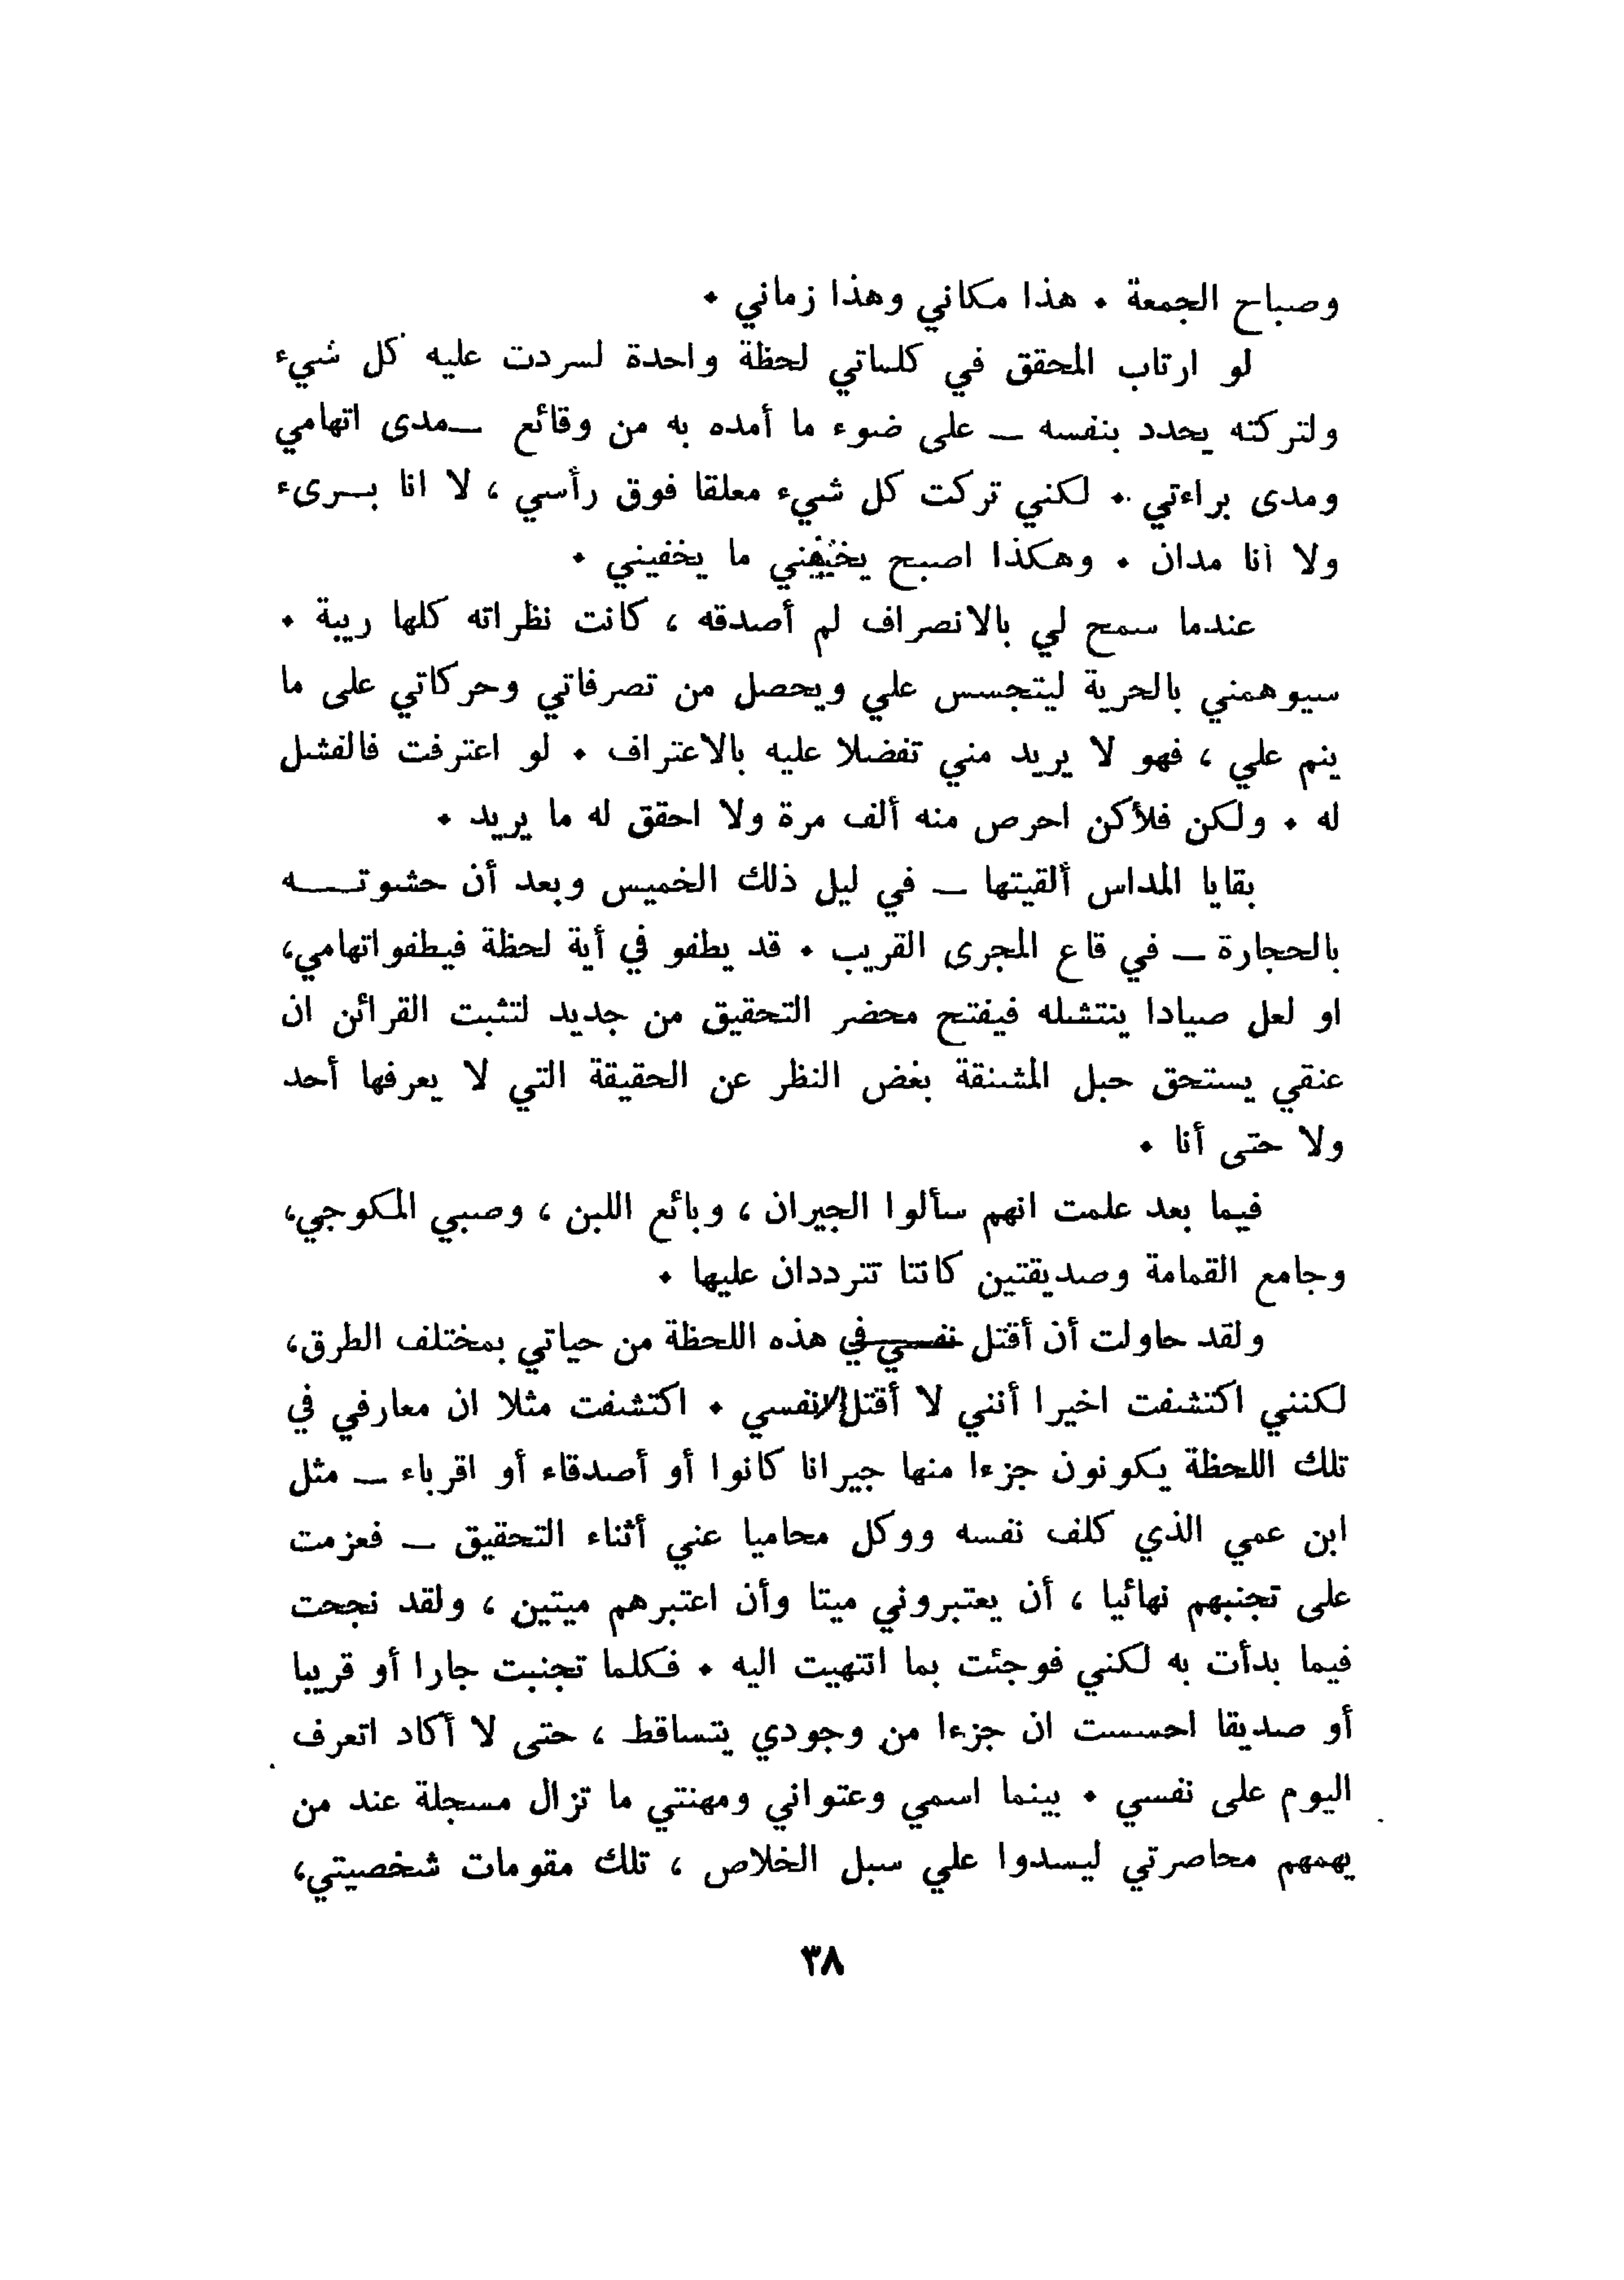 وصباح الجمعة . هذا مكاني وهذا زماني .
لو ارتاب المحقق في كلماتي لحظة واحدة لسردت عليه كل شيء
ولتركته يحدد بنفسه ــ على ضوء ما أمده به من وقائع ــ مدى اتهامي
ومدى براءتي . لكني تركت كل شيء معلقا فوق رأسي ، لا انا بــرىء
ولا أنا مدان . وهكذا اصبح ما يخفيني .
عندما سمح لي بالانصراف لم أصدقه ، كانت نظراته كلها ريبة .
سيوهمني بالحرية ليتجسس علي ويحصل من تصرفاتي وحركاتي على ما
ينم علي ، فهو لا يريد مني تفضلا عليه بالاعتراف . لو اعترفت فالفشل
له . ولكن فلأكن احرص منه ألف مرة ولا احقق له ما يريد .
بقايا المداس ألقيتها ــ في ليل ذلك الخميس وبعد أن حشوتــــه
بالحجارة ــ في قاع المجرى القريب . قد يطفو في أية لحظة فيطفو اتهامي،
او لعل صيادا ينتشله فيفتح محضر التحقيق من جديد لتثبت القرائن ان
عنقي يستحق حبل المشنقة بغض النظر عن الحقيقة التي لا يعرفها أحد
ولا حتى أنا .
فيما بعد علمت انهم سألوا الجيران ، وبائع اللبن ، وصبي المكوجي،
وجامع القمامة وصديقتين كانتا تترددان عليها .
ولقد حاولت أن أقتل نفسي في هذه اللحظة من حياتي بمختلف الطرق،
لكنني اكتشفت اخيرا أنني لا أقتل إلا نفسي . اكتشفت مثلا ان معارفي في
تلك اللحظة يكونون جزءا منها جيرانا كانوا أو أصدقاء أو اقرباء ــ مثل
ابن عمي الذي كلف نفسه ووكل محاميا عني أثناء التحقيق ــ فعزمت
على تجنبهم نهائيا ، أن يعتبروني ميتا وأن اعتبرهم ميتين ، ولقد نجحت
فيما بدأت به لكني فوجئت بما انتهيت اليه . فكلما تجنبت جارا أو قريبا
أو صديقا احسست ان جزءا من وجودي يتساقط ، حتى لا أكاد اتعرف
اليوم على نفسي . بينما اسمي وعنواني ومهنتي ما تزال مسجلة عند من
يهمهم محاصرتي ليسدوا علي سبل الخلاص ، تلك مقومات شخصيتي،
٣٨